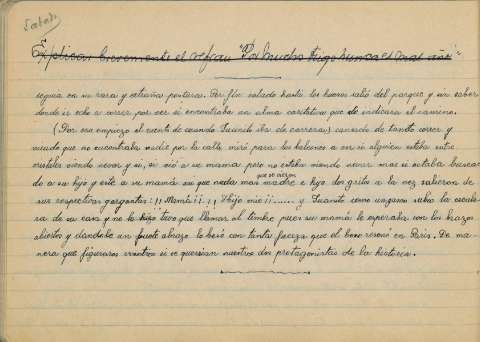 Sabado
Explicar brevemente el refran "Por mucho trigo nunca es mal año".
seguia en su rara y extraña postura. Por fin calado hasta los huesos salió del parque y sin saber
donde ir echo a correr por ver si encontraba un alma caritativa que le indicara el camino.
(Por eso empieza el cuento de cuando Juanito iba de carreras) cansado de tanto correr y
viendo que no encontraba nadie por la calle miró para los balcones a ver si alguien estaba entre
cristales viendo nevar y si, si vió a su mamá pero no estaba viendo nevar mas si estaba buscan
do a su hijo y este a su mamá asi que nada mas que se vieron madre e hijo dos gritos a la vez salieron de
sus respectivas gargantas: ¡¡Mamá!! ¡¡Hijo mio!! ...... y Juanito como un gamo subio la escale
ra de su casa y no le hizo tuvo que llamar al timbre pues su mamá le esperaba con los brazos
abiertos y dandole un fuerte abrazo le besó con tanta fuerza que el beso resonó en Paris. De ma-
nera que figuraros vosotros si se querrian nuestros dos protagonistas de la historia.